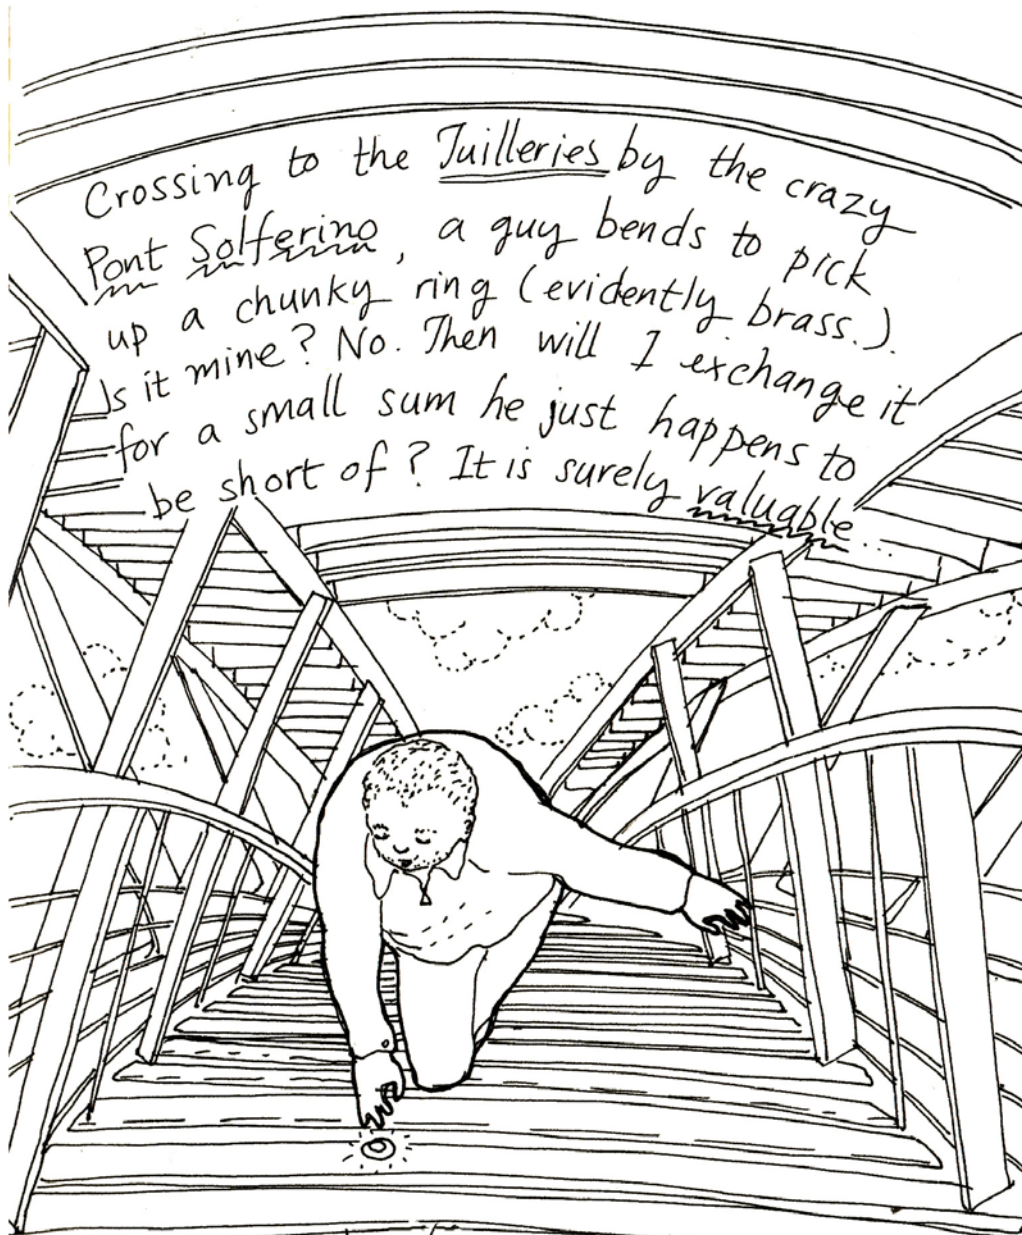 Crossing to the Tuilleries by the crazy
Pont Solferino, a guy bends to pick
up a chunky ring (evidently brass.).
Is it mine? No. Then will I exchange it
for a small sum he just happens to
be short of? It is surely valuable...